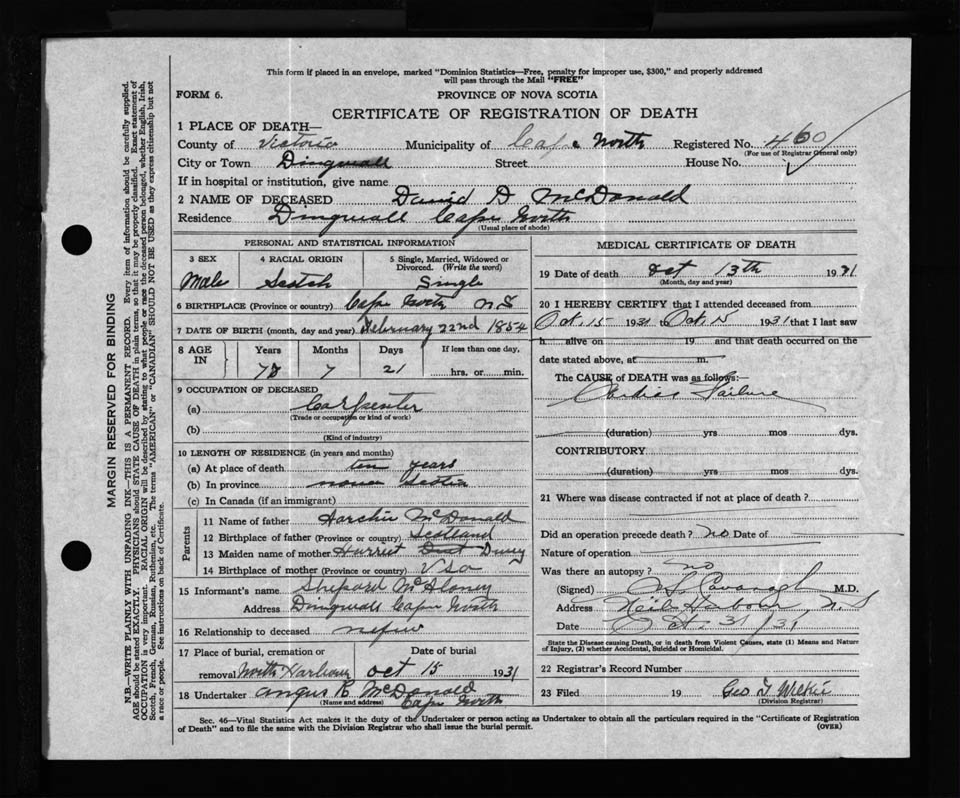 This form if placed in an envelope, marked "Dominion Statistics—Free, penalty for improper use, $300," and properly addressed
will pass through the Mail "FREE"
FORM 6.
PROVINCE OF NOVA SCOTIA
CERTIFICATE OF REGISTRATION OF DEATH
1 PLACE OF DEATH—
County of Victoria Municipality of Cape North Registered No. 460
(For use of Registrar General only)
City or Town Dingwall Street House No.
If in hospital or institution, give name
2 NAME OF DECEASED David D McDonald
Residence Dingwall Cape North
(Usual place of abode)
PERSONAL AND STATISTICAL INFORMATION
3 SEX 4 RACIAL ORIGIN 5 Single, Married, Widowed or
Divorced. (Write the word)
Male Scotch Single
6 BIRTHPLACE (Province or country) Cape North N S
7 DATE OF BIRTH (month, day and year) February 22nd 1854
8 AGE IN Years Months Days If less than one day.
7 21 hrs. or min.
9 OCCUPATION OF DECEASED
(a) Carpenter
(Trade or occupation or kind of work)
(b)
(Kind of industry)
10 LENGTH OF RESIDENCE (in years and months)
(a) At place of death ten years
(b) In province nova Scotia
(c) In Canada (if an immigrant)
Parents
11 Name of father Harchie McDonald
12 Birthplace of father (Province or country) Scotland
13 Maiden name of mother Harriet
14 Birthplace of mother (Province or country) USA
15 Informant's name Shepard
Address Dingwall Cape North
16 Relationship to deceased nefiw
17 Place of burial, cremation or Date of burial
removal North Harbour oct 15 1931
18 Undertaker angus B McDonald
(Name and address) Cape North
MEDICAL CERTIFICATE OF DEATH
19 Date of death Oct 13th 1931
(Month, day and year)
20 I HEREBY CERTIFY that I attended deceased from
Oct. 15 1931 to Oct. 15 1931 that I last saw
h alive on 19 and that death occurred on the
date stated above, at m.
The CAUSE of DEATH was as follows:—
Cardiac Failure
(duration) yrs mos dys.
CONTRIBUTORY
(duration) yrs mos dys.
21 Where was disease contracted if not at place of death ?
Did an operation precede death ? No Date of
Nature of operation
Was there an autopsy ? no
(Signed) Cavanagh M.D.
Address Neils Harbour, N.S
Date Oct. 31/31
State the Disease causing Death, or in death from Violent Causes, state (1) Means and Nature
of Injury, (2) whether Accidental, Suicidal or Homicidal.
22 Registrar's Record Number
23 Filed 19 Geo T. Wilkie
(Division Registrar)
Sec. 46—Vital Statistics Act makes it the duty of the Undertaker or person acting as Undertaker to obtain all the particulars required in the "Certificate of Registration
of Death" and to file the same with the Division Registrar who shall issue the burial permit.
(OVER)
MARGIN RESERVED FOR BINDING
N.B.—WRITE PLAINLY WITH UNFADING INK—THIS IS A PERMANENT RECORD. Every item of information should be carefully supplied.
AGE should be stated EXACTLY. PHYSICIANS should STATE CAUSE OF DEATH in plain terms, so that it may be properly classified. Exact statement of
OCCUPATION is very important. RACIAL ORIGIN will be described by stating to what people or race the deceased person belonged, whether English, Irish,
Scotch, French, German, Russian, Ruthenian, etc. The terms "AMERICAN" or "CANADIAN" SHOULD NOT BE USED as they express citizenship but not
a race or people. See instructions on back of Certificate.